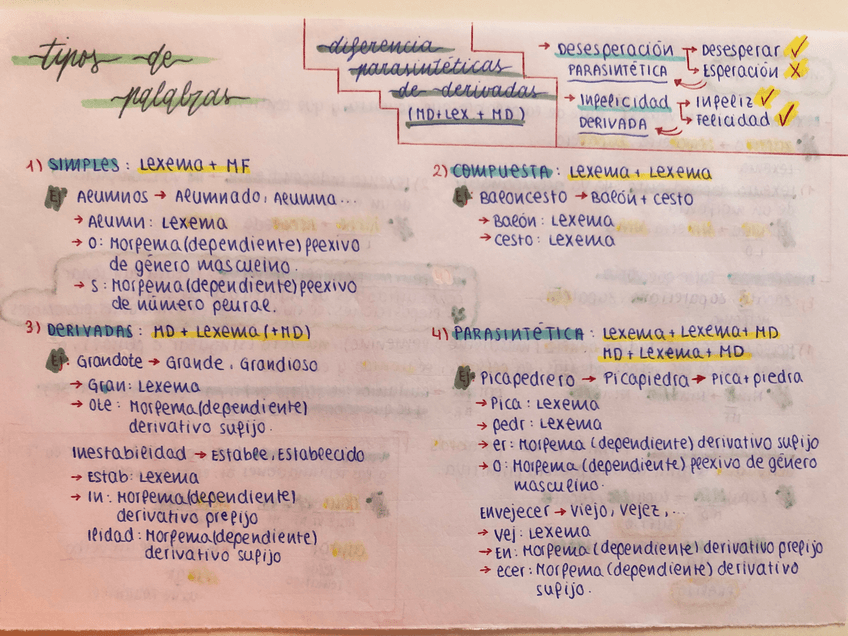 tipos de
palabras
diferencia
parasintéticas
de derivadas
(MD+LEX + MD)
→ Desesperación → Desesperar ✓
PARASINTÉTICA ↳ Esperación X
→ Infelicidad → Infeliz ✓
DERIVADA ↳ Felicidad ✓
1) SIMPLES: Lexema + MF
Ej: Alumnos → Alumnado, Alumna...
→ Alumn: Lexema
→ O: Morfema (dependiente) flexivo
de género masculino.
→ S: Morfema (dependiente) flexivo
de número plural.
2) COMPUESTA: Lexema + Lexema
Ej: Baloncesto → Balón + cesto
→ Balón: Lexema
→ cesto: Lexema
3) DERIVADAS: MD + Lexema (+MD)
Ej: Grandote → Grande, Grandioso
→ Gran: Lexema
→ Ote: Morfema (dependiente)
derivativo sufijo.
Inestabilidad → Estable, Establecido
→ Estab: Lexema
→ In: Morfema (dependiente)
derivativo prefijo
ilidad: Morfema (dependiente)
derivativo sufijo
4) PARASINTÉTICA: Lexema + Lexema + MD
MD + Lexema + MD
Ej: Picapedrero → Picapiedra → Pica + piedra
→ Pica: Lexema
→ pedr: Lexema
→ er: Morfema (dependiente) derivativo sufijo
→ O: Morfema (dependiente) flexivo de género
masculino.
Envejecer → viejo, vejez, ...
→ vej: Lexema
→ En: Morfema (dependiente) derivativo prefijo
→ ecer: Morfema (dependiente) derivativo
sufijo.